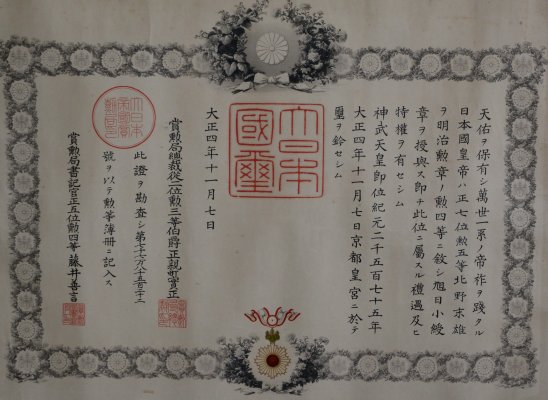 天佑ヲ保有シ萬世一系ノ帝祚ヲ踐タル
日本國皇帝ハ正七位勲五等北野末雄
ヲ明治勲章ノ勲四等ニ敍シ旭日小綬
章ヲ授與ス即チ此位ニ屬スル禮遇及ヒ
特權ヲ有セシム
神武天皇即位紀元二千五百七十五年
大正四年十一月七日京都皇宮ニ於テ
璽ヲ鈐セシム
大日本
國璽
大正四年十一月七日
賞勲局總裁從二位勲三等伯爵正親町實正
此證ヲ勘査シ第
號ヲ以テ勲等簿冊ニ記入ス
賞勲局書記官正五位勲四等藤井善言
大日本